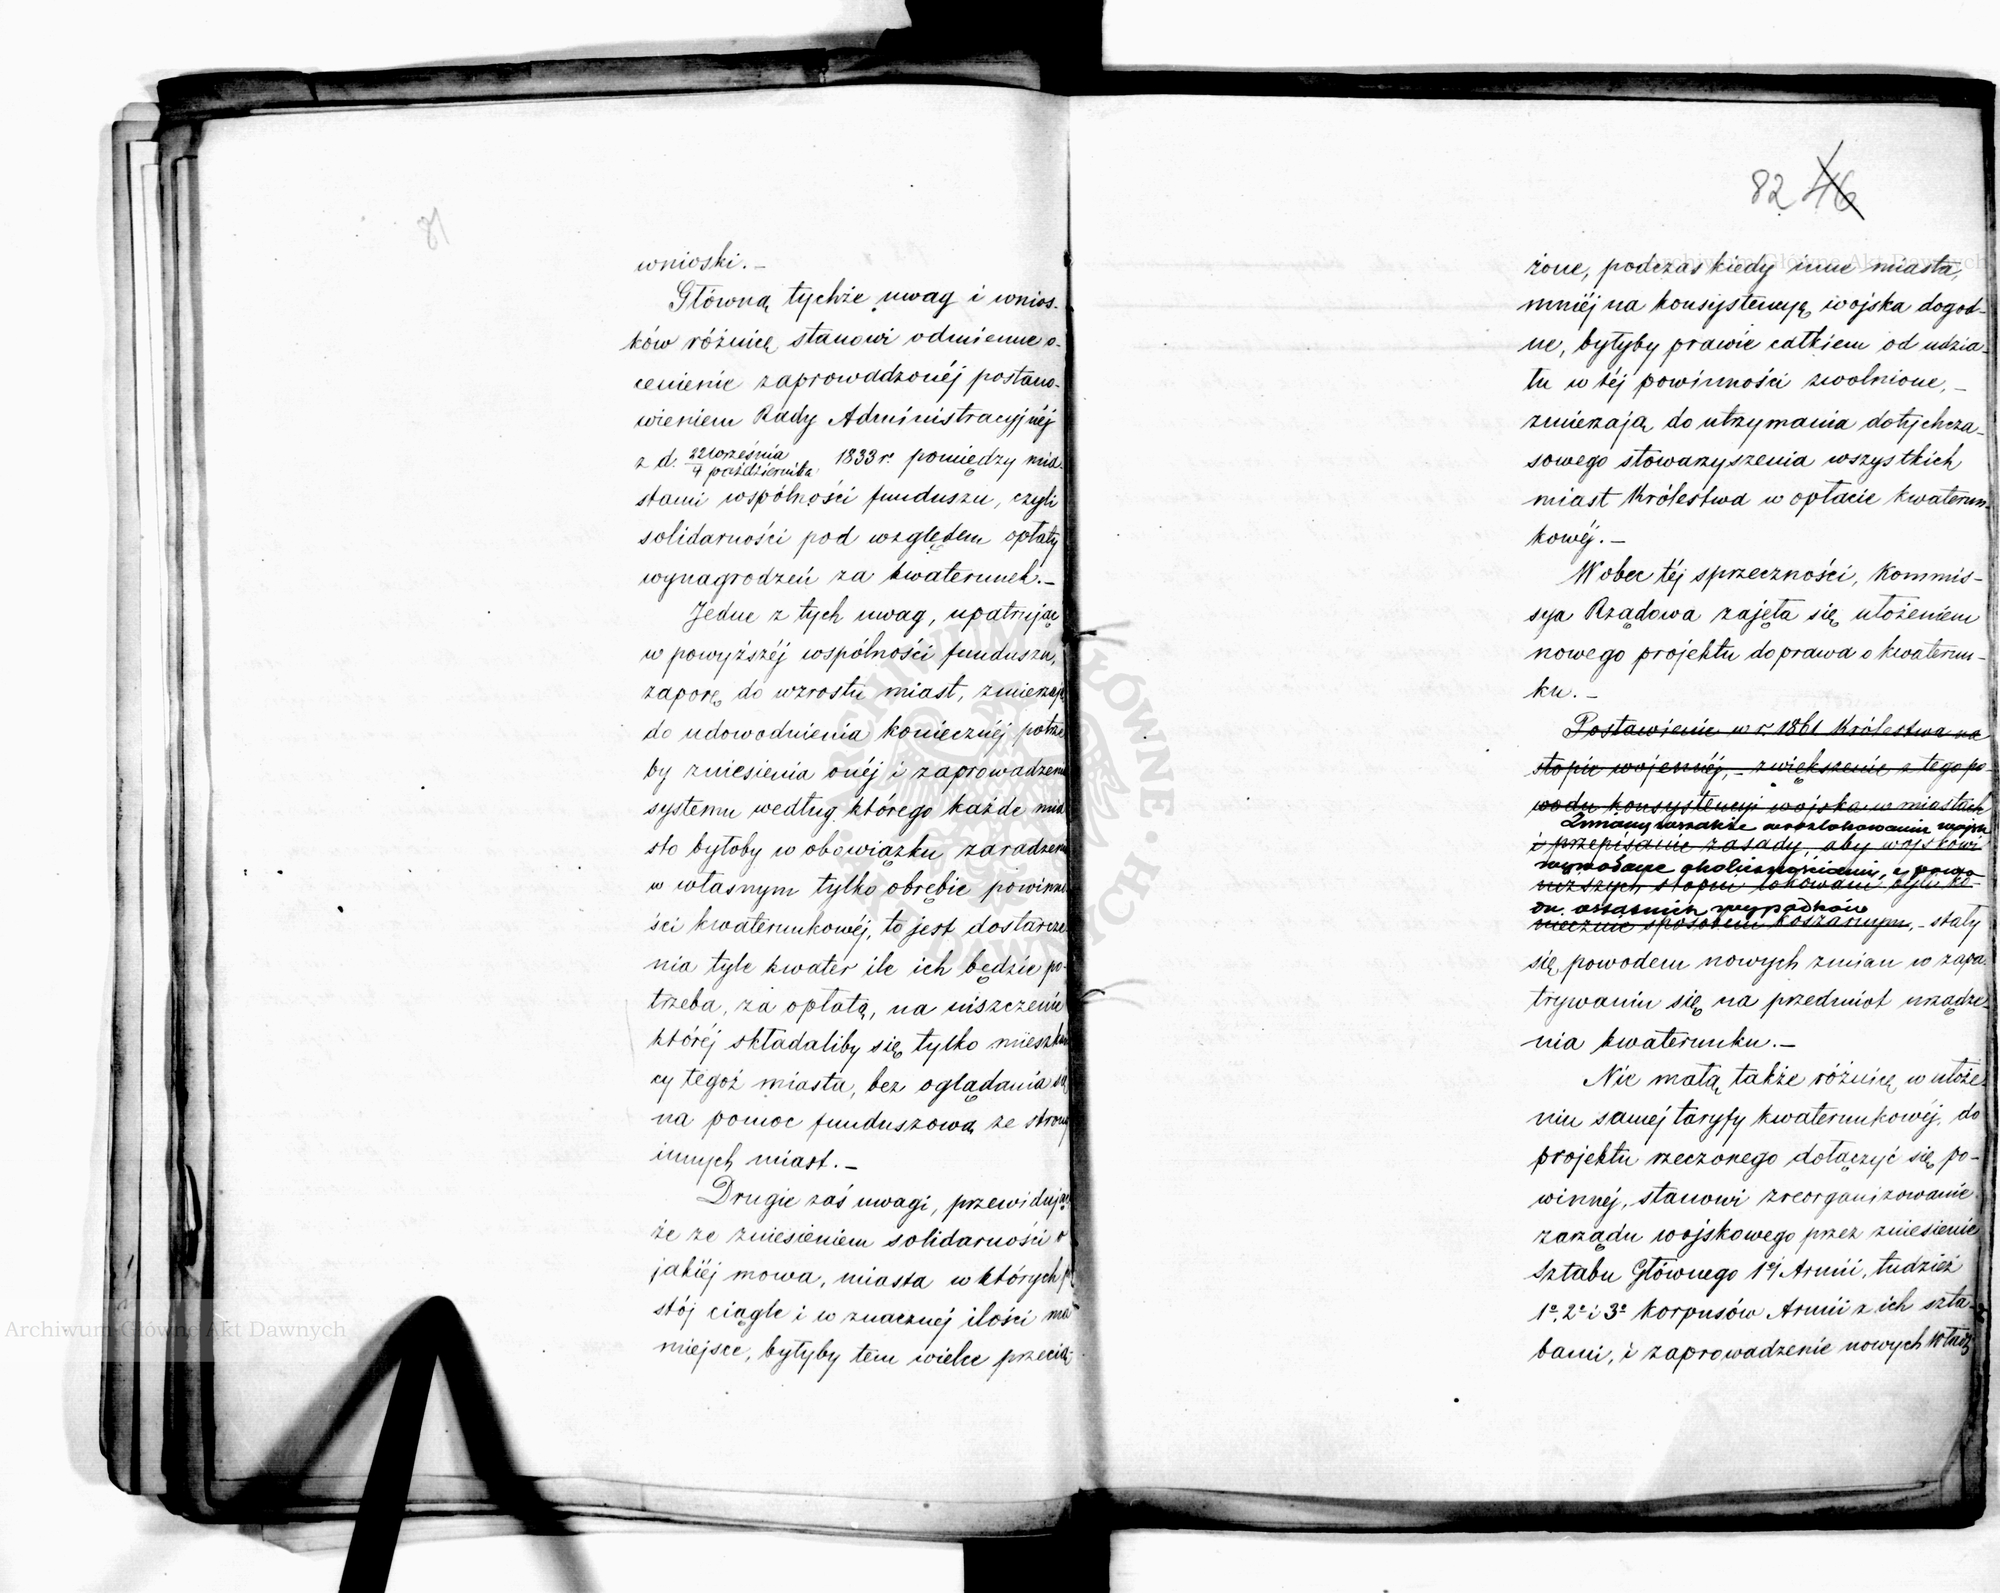 81
wnioski. —
Główną tychże uwag i wnios-
ków różnicę stanowi odmienne o-
cenienie zaprowadzonéj postano-
wieniem Rady Administracyjnéj
z d. 22 września / 4 października 1833 r. pomiędzy mia-
stami wspólności funduszu, czyli
solidarności pod względem opłaty
wynagrodzeń za kwaterunek. —
Jedne z tych uwag, upatrując
w powyższéj wspólności funduszu,
zaporę do wzrostu miast, zmierzają
do udowodnienia koniecznéj potrze-
by zniesienia onéj i zaprowadzenia
systemu według którego każde mia-
sto byłoby w obowiązku zaradzenia
w własnym tylko obrębie powinno-
ści kwaterunkowéj, to jest dostarcze-
nia tyle kwater ile ich będzie po-
trzeba, za opłatą, na uiszczenie
któréj składaliby się tylko mieszkań-
cy tegoż miasta, bez oglądania się
na pomoc funduszową ze strony
innych miast. —
Drugie zaś uwagi, przewidując
że ze zniesieniem solidarności o
jakiéj mowa, miasta w których po-
stój ciągle i w znacznéj ilości ma
miejsce, byłyby tem wielce przecią-
82 46
żone, podczas kiedy inne miasta,
mniéj na konsystencyą wojska dogod-
ne, byłyby prawie całkiem od udzia-
łu w téj powinności zwolnione, —
zmierzają do utrzymania dotychcza-
sowego stowarzyszenia wszystkich
miast Królestwa w opłacie kwaterun-
kowéj. —
Wobec téj sprzeczności, Kommis-
sya Rządowa zajęła się ułożeniem
nowego projektu do prawa o kwaterun-
ku. —
Postawienie w r. 1861 Królestwa na
stopie wojennéj, — zwiększenie z tego po-
wodu konsystencyi wojska w miastach
Zmiany wszakże w rozlokowaniu wojsk
i przepisanie zasady, aby wojskowi
wywołane okolicznościami, z powo-
niższych stopni lokowani byli ko-
du ostatnich wypadków
niecznie sposobem koszarnym, — stały
się powodem nowych zmian w zapa-
trywaniu się na przedmiot urządze-
nia kwaterunku. —
Nie małą także różnicę w ułoże-
niu saméj taryfy kwaterunkowéj, do
projektu rzeczonego dołączyć się po-
winnéj, stanowi zreorganizowanie
zarządu wojskowego przez zniesienie
Sztabu Głównego 1éj Armii, tudzież
1º, 2º i 3º Korpusów Armii z ich szta-
bami, i zaprowadzenie nowych Władz
Archiwum Główne Akt Dawnych
Archiwum Główne Akt Dawnych
ARCHIWUM GŁÓWNE AKT DAWNYCH